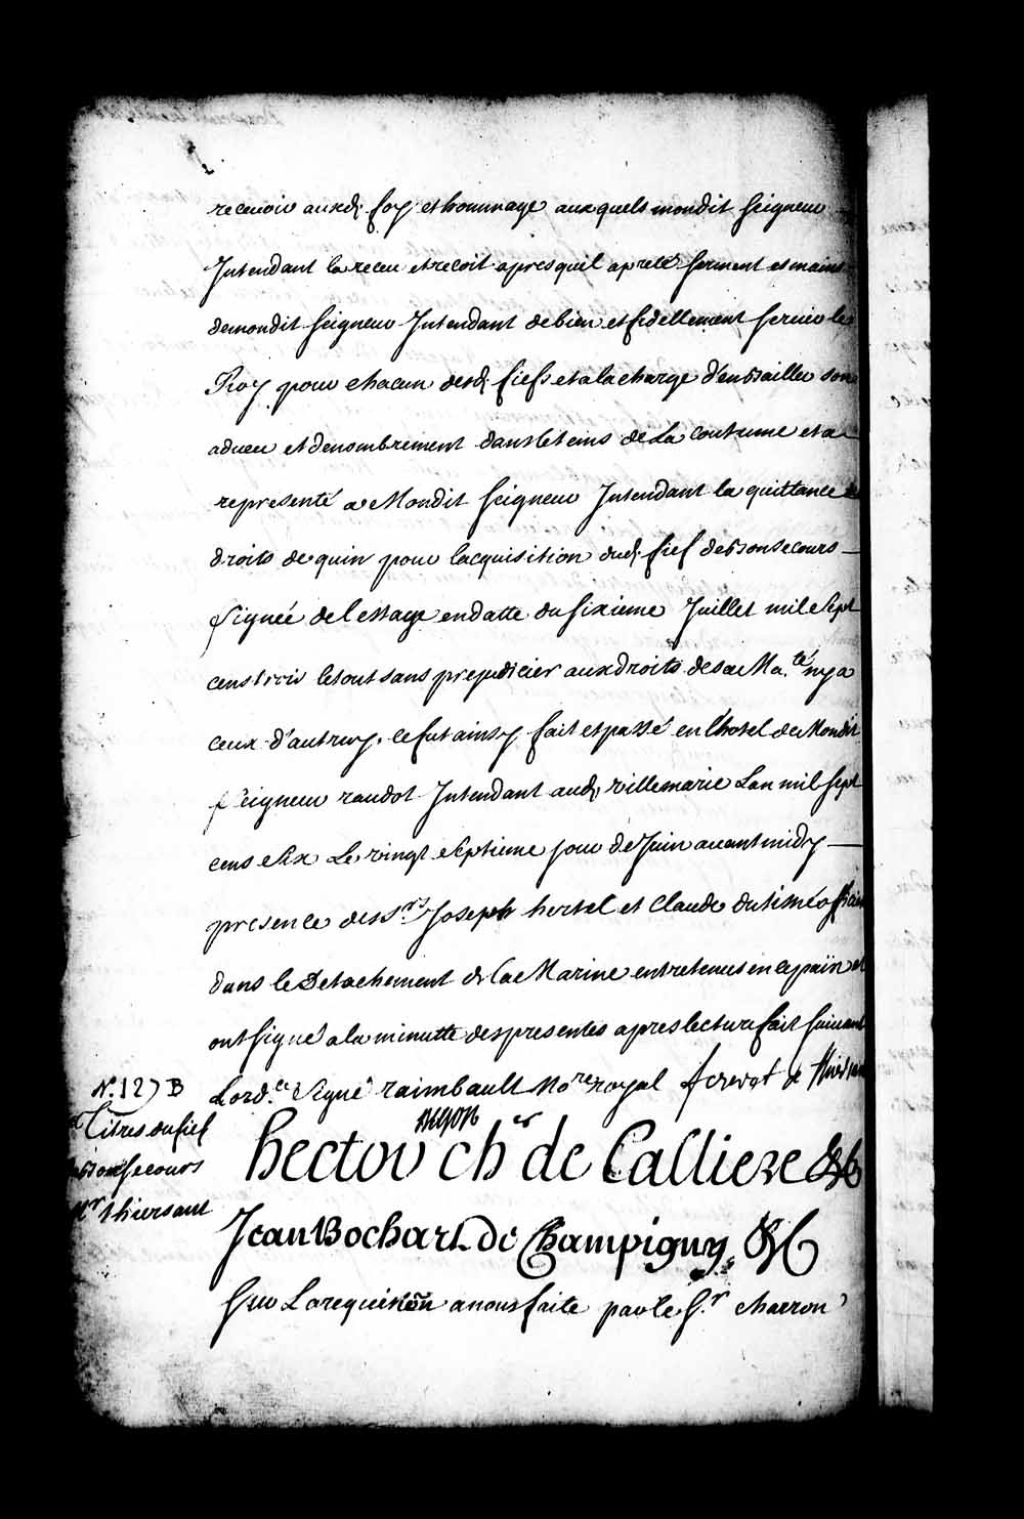 recevoir auxd. foy et hommage auxquels mondit seigneur
Intendant la receu et recoit apres quil a presté serment es mains
de mondit seigneur Intendant de bien et fidellement servir le
Roy pour chacun desd. fiefs et a la charge d'en bailler son
adveu et denombrement dans le tems de la coutume et a
representé a Mondit seigneur Intendant la quittance
droits de quin pour lacquisition dud. fief de bonsecours
signée de lestage en datte du sixieme Juillet mil sept
cens trois le tout sans prejudicier aux droits de sa Ma.té ny a
ceux d'autruy. ce fut ainsy fait et passé en l'hotel de Mondit
seigneur raudot Intendant aud. villemarie Lan mil sept
cens six Le vingt septieme jour de Juin avant midy
presence des Srs Joseph hertel et Claude officiers
dans le Detachement de la Marine entretenus en ce païs et
ont signé a la minutte des presentes apres lecture faite suivant
Lord.ce signé raimbault No.re royal
N.º 127 B
Titres du fief
bonsecours
Mr thiersant
hector ch.er de Calliere &c
Jean Bochart de Champigny &c
Sur La requisition a nous faite par le S.r charron